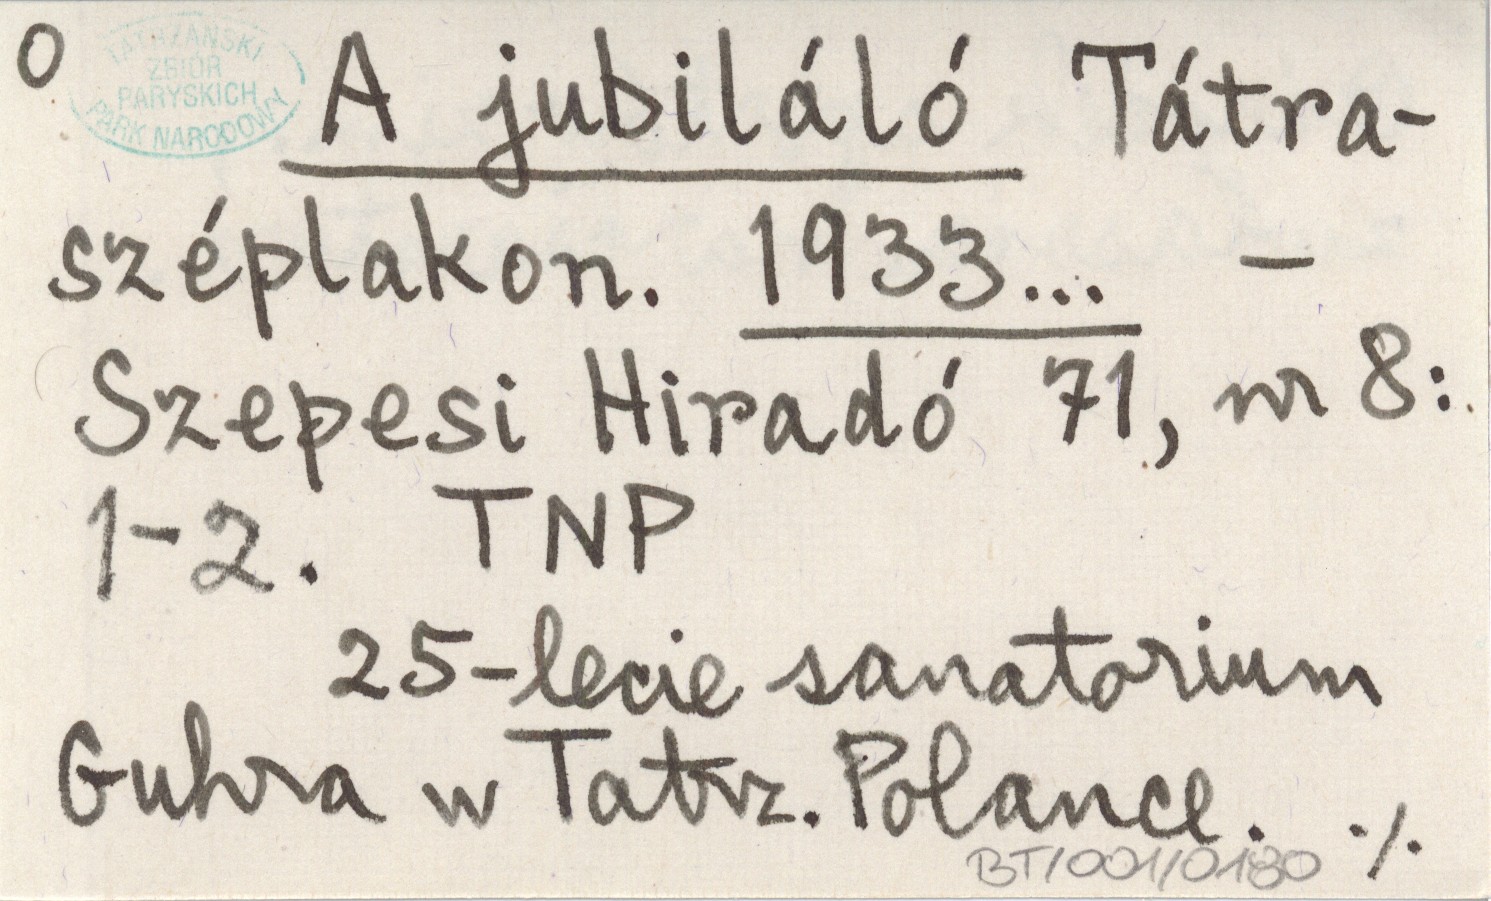 O
TATRZAŃSKI
ZBIÓR
PARYSKICH
PARK NARODOWY
A jubiláló Tátra-
széplakon. 1933... –
Szepesi Hiradó 71, nr 8:
1–2. TNP
25-lecie sanatorium
Guhra w Tatrz. Polance. ./.
BT/001/0180